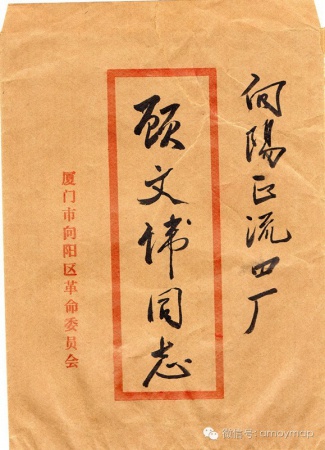 向陽正流四厂
顾文伟同志
厦门市向阳区革命委员会
微信号: amoymap